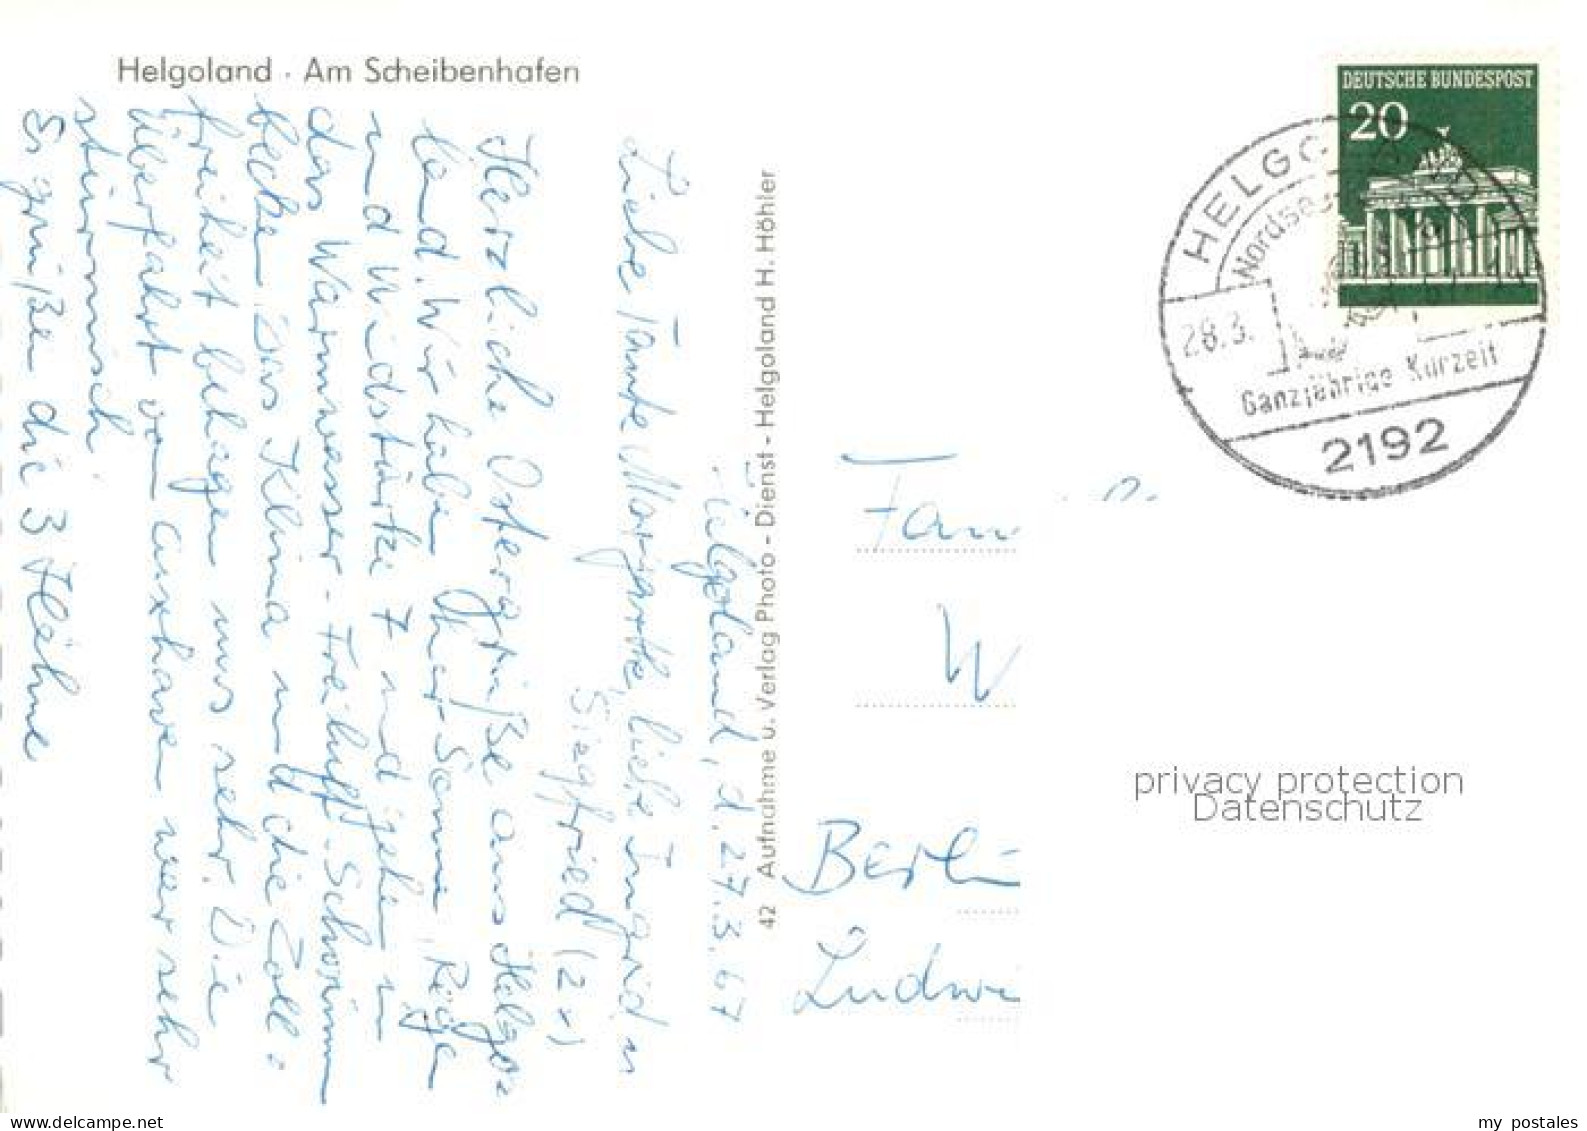 Helgoland · Am Scheibenhafen
Helgoland, d. 27.3.67
Liebe Tante Margarethe, liebe Ingrid u
Siegfried (2x)
Herzliche Ostergrüße aus Helgo=
land. Wir haben hier Sonne, Regen
und Windstärke 7 und gehen in
das Warmwasser-Freiluft-Schwimm
becken. Das Klima und die Zoll=
freiheit behagen uns sehr. Die
Überfahrt von Cuxhaven war sehr
stürmisch.
Es grüßen die 3 Hähne
42 Aufnahme u. Verlag Photo - Dienst - Helgoland H. Höhler
DEUTSCHE BUNDESPOST
20
HELGOLAND
Nordsee
28.3.
Ganzjährige Kurzeit
2192
Fam
W
Berlin
Ludwi
privacy protection
Datenschutz
www.delcampe.net
my_postales